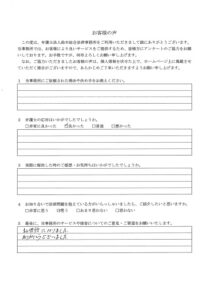 お客様の声
この度は、弁護士法人鈴木総合法律事務所をご利用いただきまして誠にありがとうございます。
当事務所では、お客様により良いサービスをご提供するため、皆様にアンケートのご協力をお願い
しております。お手数ですが、何卒よろしくお願い申し上げます。
なお、ご協力いただきましたお客様の声は、個人情報を伏せた上で、ホームページ上に掲載させて
いただく場合がございますので、あらかじめご了承いただきますようお願い申し上げます。
1 当事務所にご依頼された理由や決め手をお教えください。
2 弁護士の応対はいかがでしたでしょうか。
□非常に良かった ☑良かった □普通 □悪かった
3 実際に依頼した時のご感想・お気持ちはいかがでしたでしょうか。
4 お知り合いで法律問題を抱えている方がいらっしゃいましたら、ご紹介したいと思いますか。
□非常に思う ☑思う □あまり思わない □思わない
5 最後に、当事務所のサービスや接客についてのご意見・ご要望をお願いいたします。
お世話になりました。
ありがとうございました。